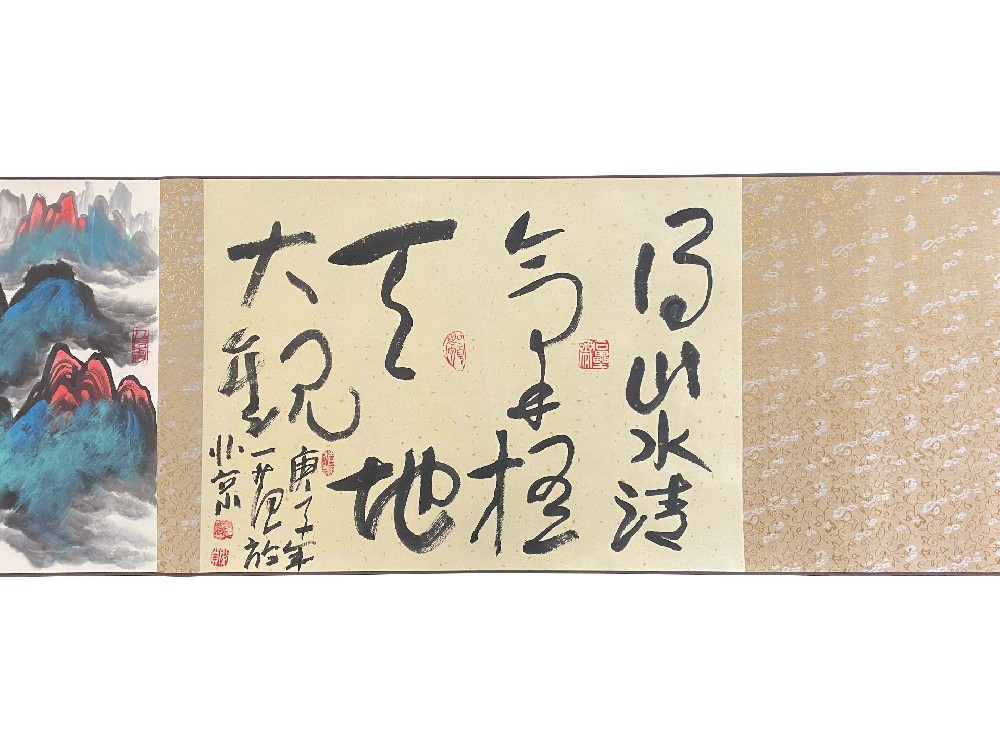 得山水清
氣極
天地
大觀
庚子年
一 於
北京